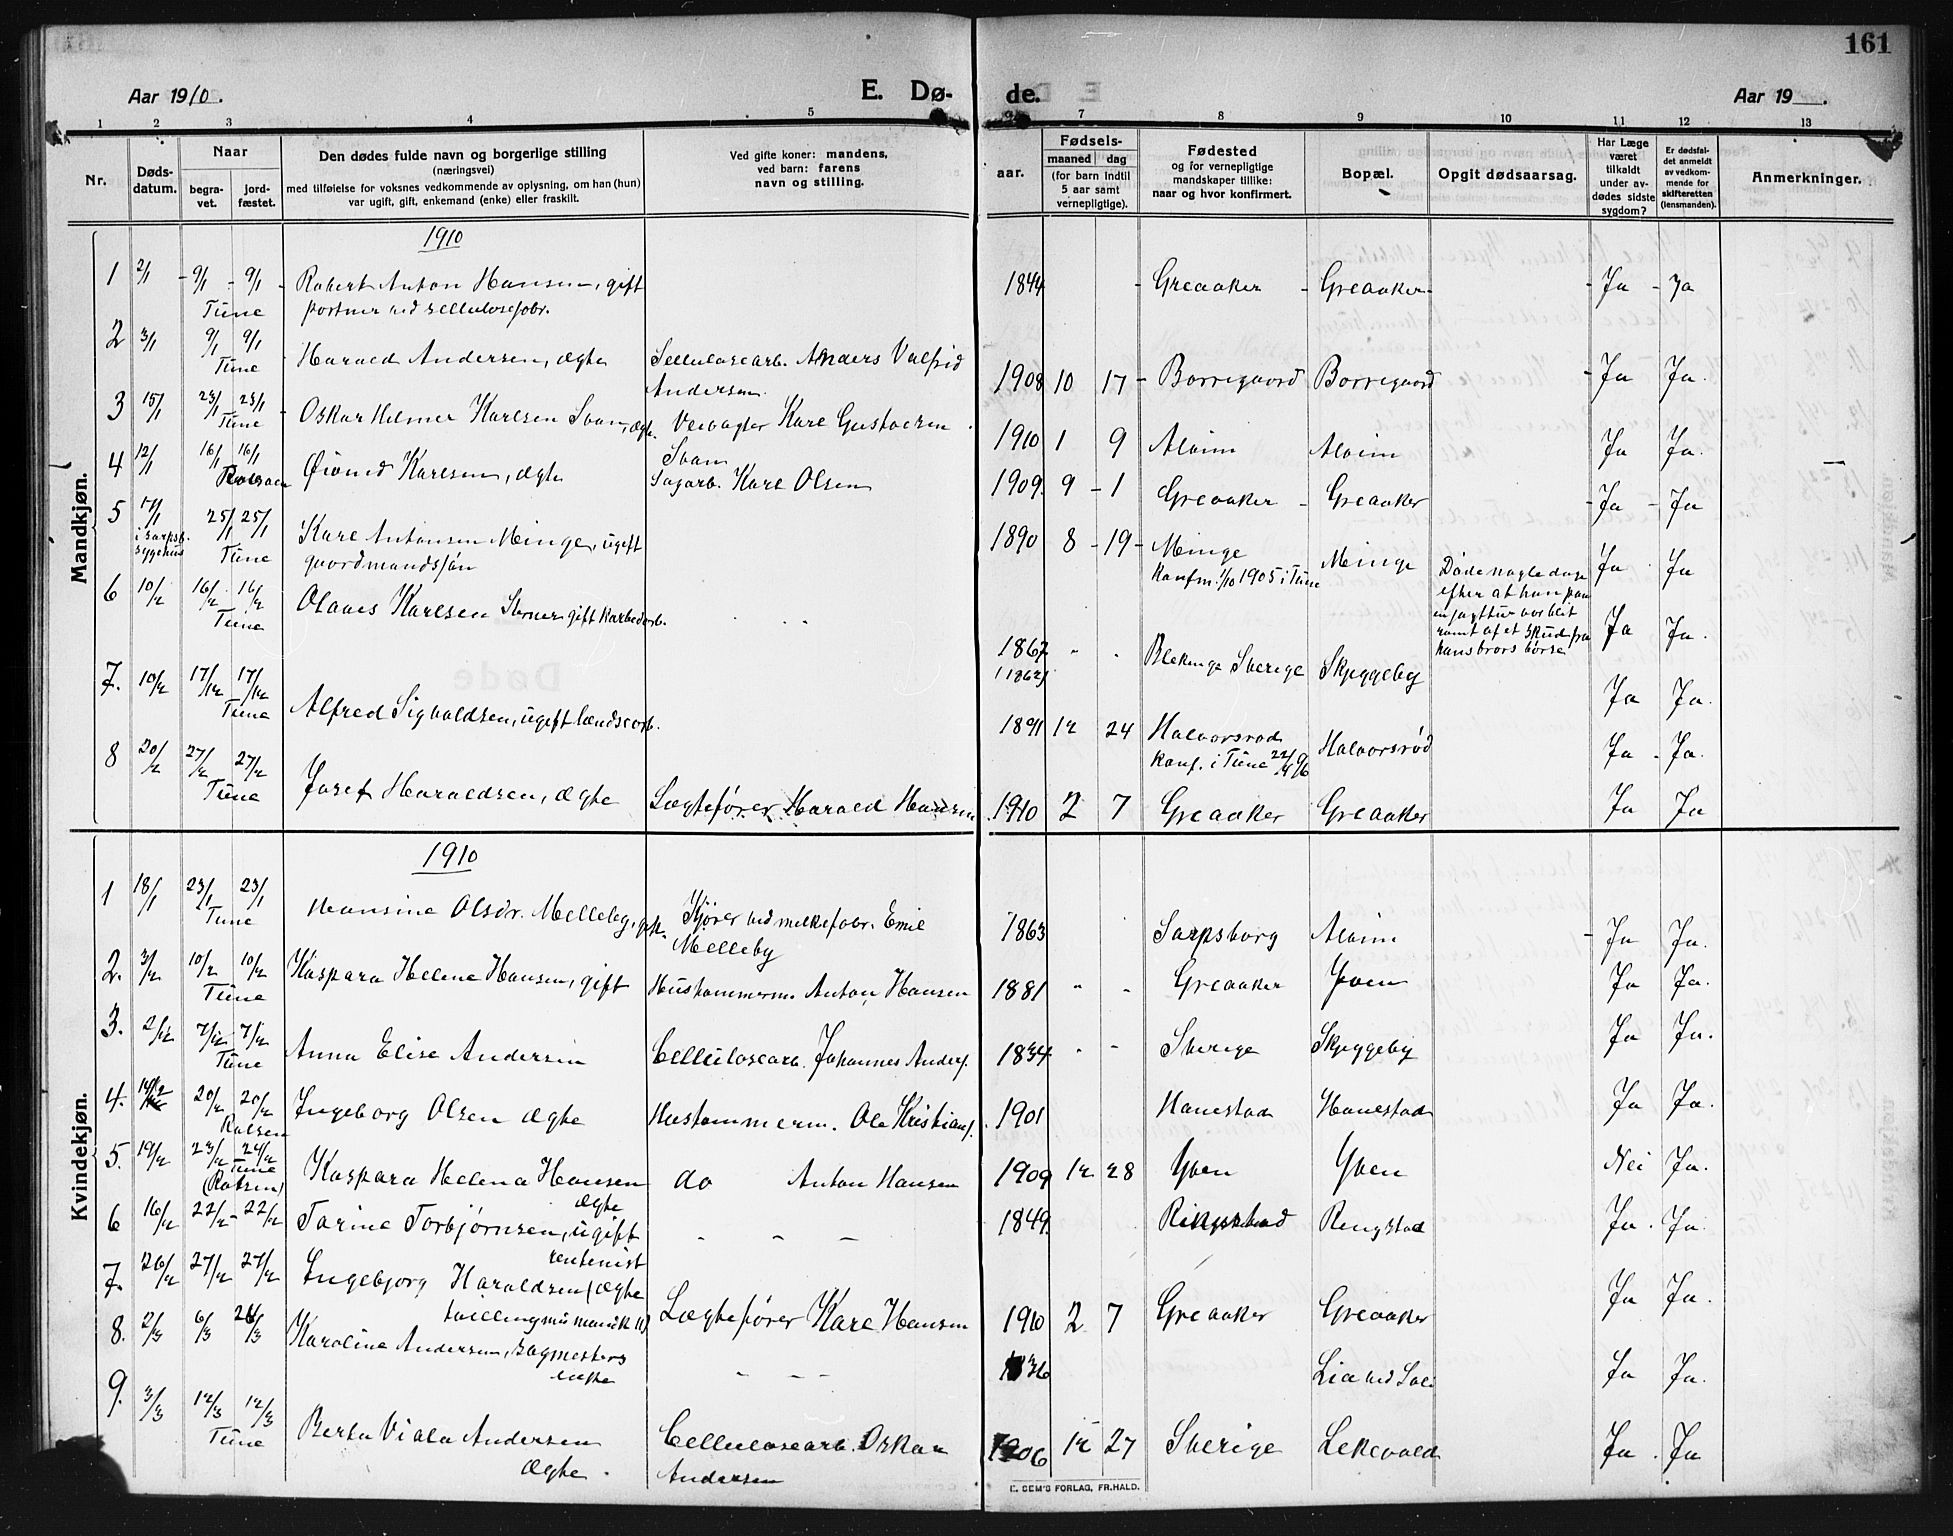 161
Aar 1910.
E. Dø-
de.
Aar 19 .
1 2 3 4 5 6 7 8 9 10 11 12 13
Nr.
Døds-
datum.
Naar
begra-
vet.
jord-
fæstet.
Den dødes fulde navn og borgerlige stilling
(næringsvei)
med tilføielse for voksnes vedkommende av oplysning, om han (hun)
var ugift, gift, enkemand (enke) eller fraskilt.
Ved gifte koner: mandens,
ved barn: farens
navn og stilling.
aar.
Fødsels-
maaned dag
(for barn indtil
5 aar samt
vernepligtige).
Fødested
og for vernepligtige
mandskaper tillike:
naar og hvor konfirmert.
Bopæl.
Opgit dødsaarsag.
Har Læge
været
tilkaldt
under av-
dødes sidste
sygdom?
Er dødsfal-
det anmeldt
av vedkom-
mende for
skifteretten
(lensmanden).
Anmerkninger.
Mandkjøn.
1910
1 2/1 - 9/1 - 9/1 - Robert Anton Hansen, gift 1844 - Greaaker - Greaaker - - Ja - Ja
Tune portner ved cellulosefabr.
2 3/1 9/1 9/1 Harald Andersen, ægte Cellulosearb. Anders Valfrid 1908 10 17 - Borregaard Borregaard - Ja Ja.
Tune Andersen.
3 15/1 23/1 23/1 - Oskar Helmer Karlsen Svan, ægt. Veivogter Karl Gustavsen 1910 1 9 Alvim Alvim Ja Ja.
Tune Svan
4 12/1 16/1 16/1 Øivind Karlsen, ægte Sagarb. Karl Olsen 1909. 9 - 1 Greaaker - Greaaker - Ja - Ja
Rolvsøen
5 17/1 25/1 25/1 Karl Antonsen Minge, ugift 1890 8 - 19 - Minge Minge Ja Ja
i Sarpsb.
sygehus Tune gaardmandssøn konfm. 1/10 1905 i Tune
Døde nogle dage
efter at han paa
en jagttur var blit
ramt af et skud fra
hans brors børse
6 10/2 16/2 16/2 Olaves Karlsen gift 1867 " " Blekinge Sverige Skjeggeby Ja Ja.
Tune
7. 10/2 17/2 17/2 Alfred Sigvaldsen, ugift 1891 12 24 Halvorsrød Halvorsrød Ja Ja.
Tune konf. i Tune
8 20/2 27/2 27/2 Josef Haraldsen, ægte Lægtefører Harald Hansen 1910 2 7 Greaaker Greaaker Ja Ja
Tune
Kvindekjøn.
1910
1 18/1 23/1 23/1 Hansine Olsdr. Melleby, gift. Kjører ved melkefabr. Emil 1863 Sarpsborg Alvim - Ja Ja.
Tune Melleby
2. 3/2 10/2 10/2 Kaspara Helene Hansen, gift Hustømmerm. Anton Hansen 1881 " " Greaaker Yven Ja Ja.
Tune
3. 2/2 7/2 7/2 Anna Elise Andersen Cellulosearb. Johannes Anders. 1834 " " Sverige Skjeggeby Ja Ja.
Tune
4. 14/2 20/2 20/2 Ingeborg Olsen ægte Hustømmerm. Ole Kristians. 1901 Hanestad Hanestad Ja Ja.
Rolvsøen
5. 19/2 23/2 24/2 Kaspara Helena Hansen do Anton Hansen 1909 12 28 Yven Yven Nei Ja.
Tune
ægte
6 16/2 22/2 - 22/2 Tarine Torbjørnsen, ugift - - - 1849. Ringstad Ringstad Ja. Ja.
rentenist
7. 20/2 27/2 27/2 Ingebjorg Haraldsen ægte Lægtefører Karl Hansen 1910 2 7 Greaaker Greaaker Ja Ja.
8. 2/3 6/3 Karoline Andersen, sagmesters - - - 1836 Lia ved Ja Ja.
enke
9. 3/3 12/3 12/3 Berta Viola Andersen Cellulosearb. Oskar 1906 12 27 Sverige Lekevold Ja. Ja
Tune ægte. Andersen
E. SEM'S FORLAG, FR.HALD.